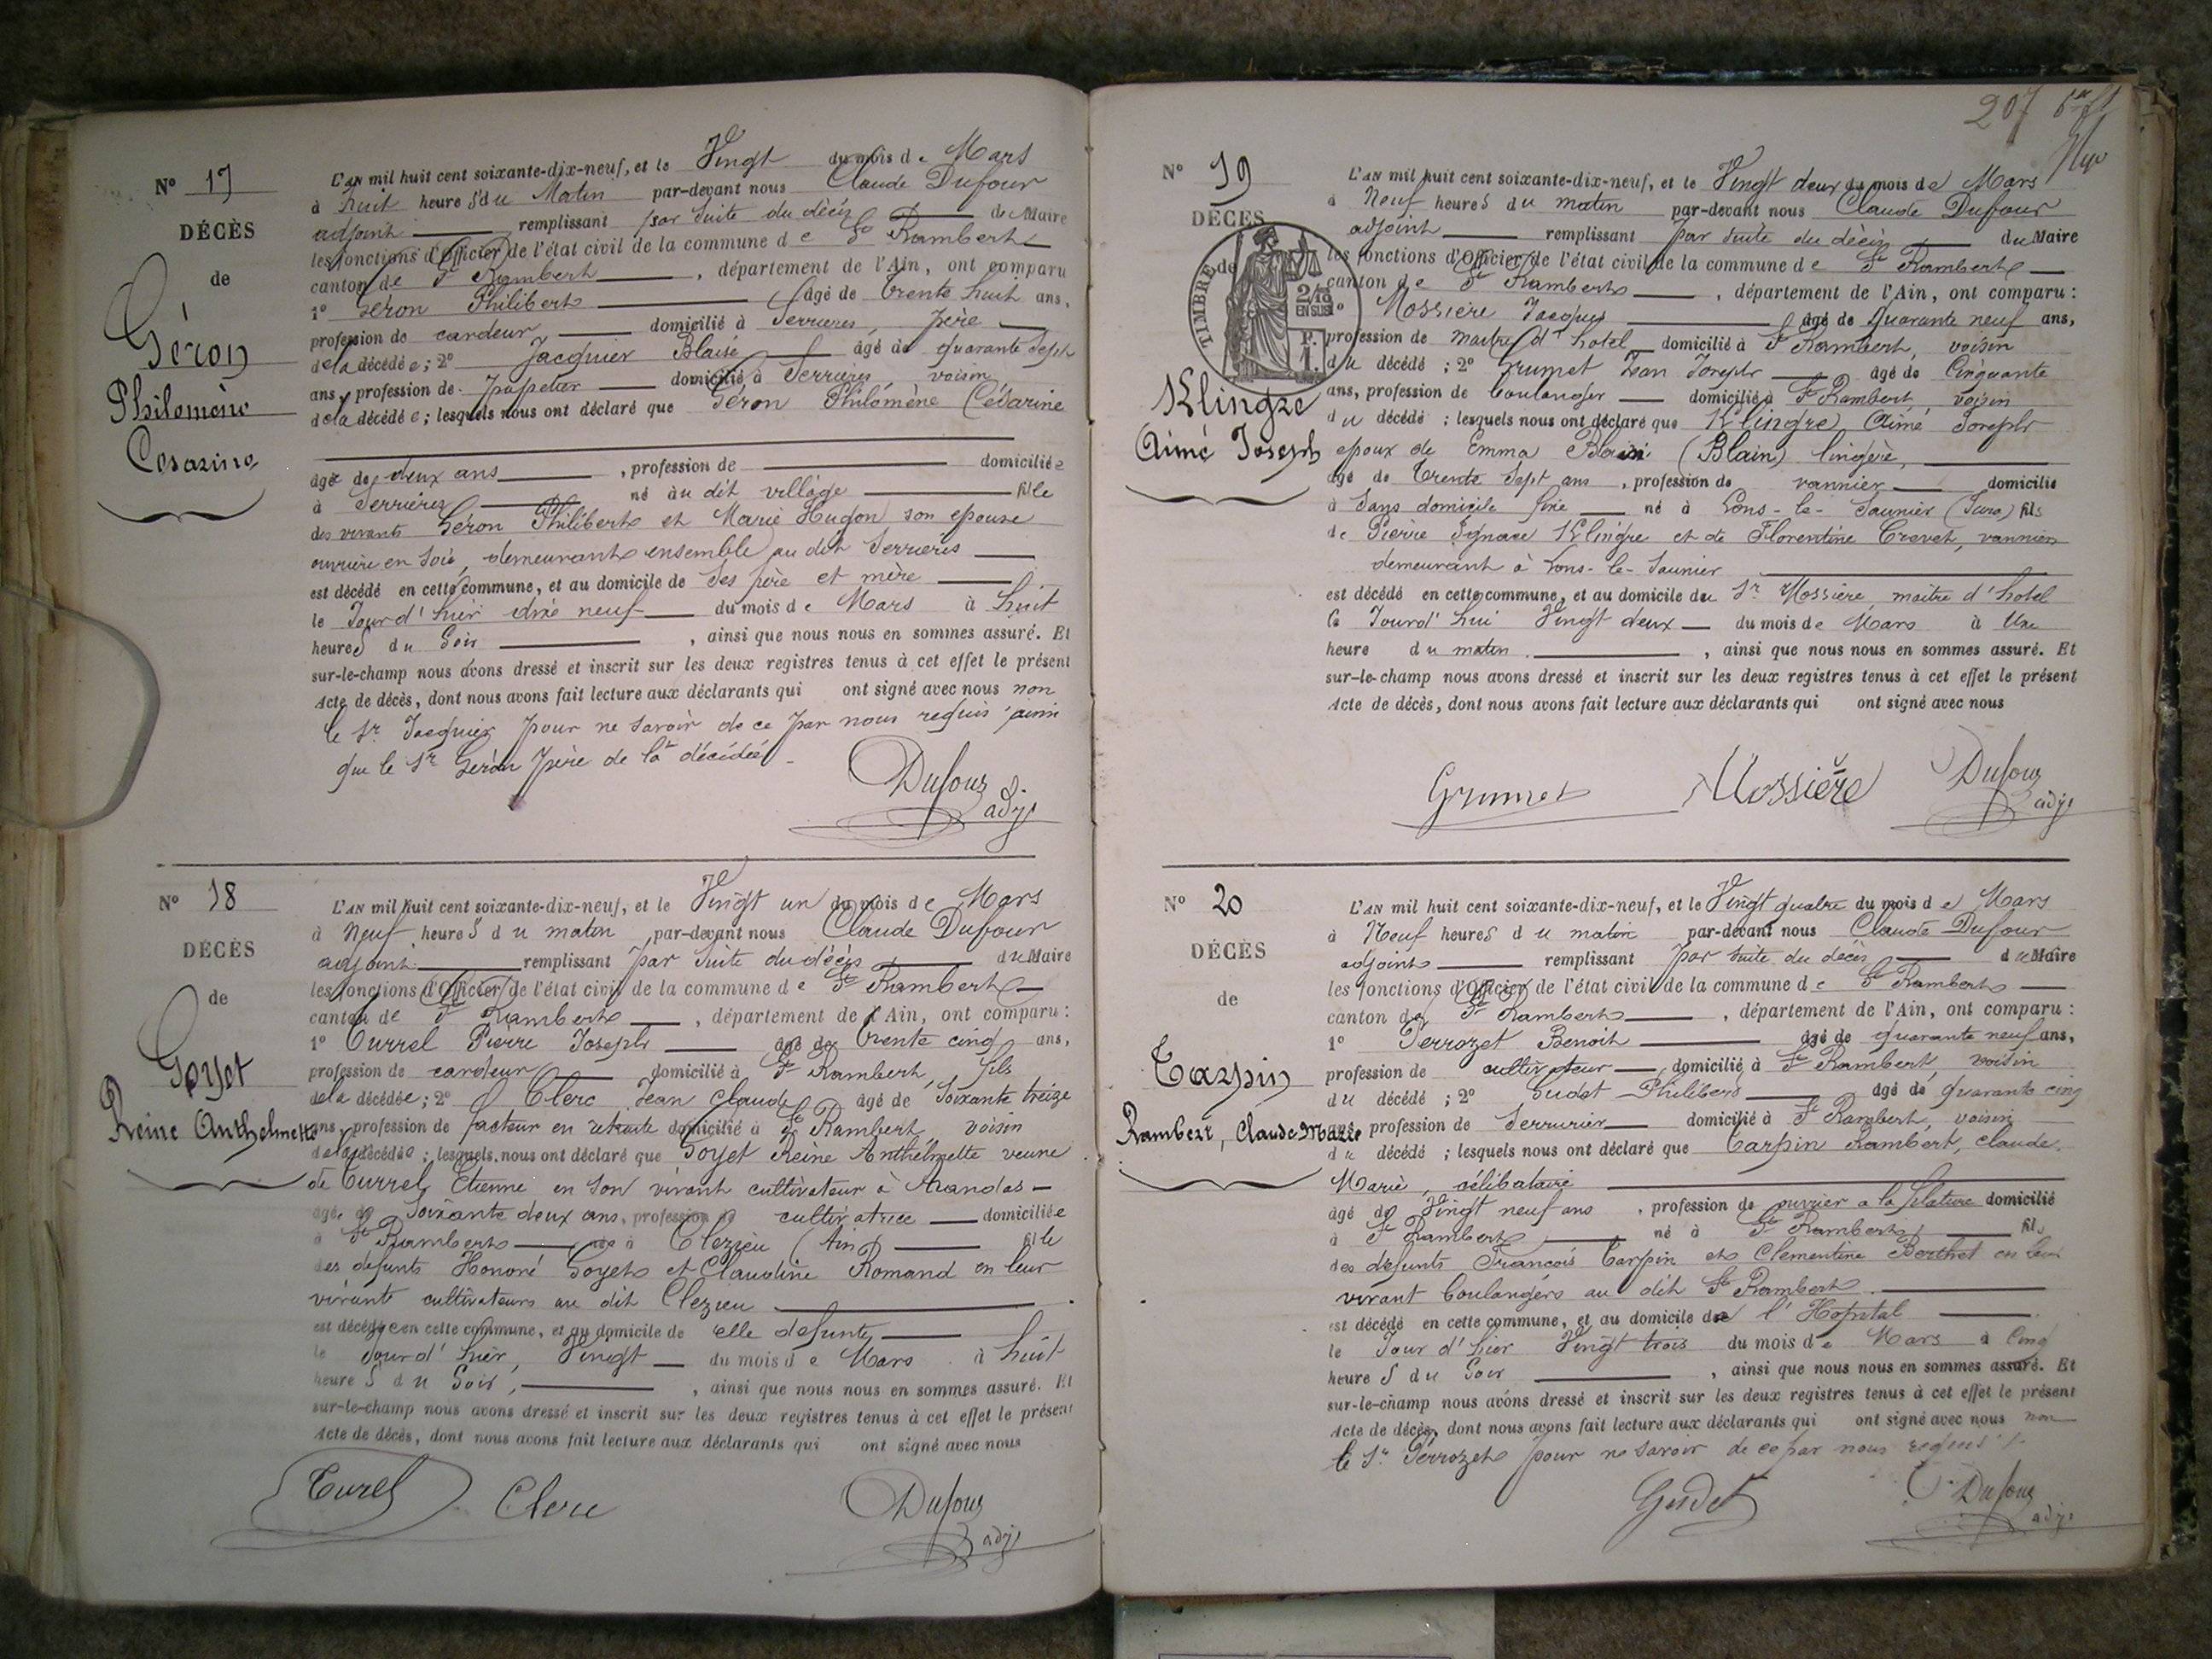 N° 17
DÉCÈS
de
Géron
Philomène
Cesarine
L'AN mil huit cent soixante-dix-neuf, et le Vingt du mois de Mars
à huit heures du Matin par-devant nous Claude Dufour
adjoint remplissant par suite du décès de Maire
les fonctions d'Officier de l'état civil de la commune de St Rambert
canton de St Rambert, département de l'Ain, ont comparu
1° Géron Philibert âgé de trente huit ans,
profession de cardeur, domicilié à Serrieres, père
de la décédée; 2° Jacquier Blaise âgé de quarante sept
ans, profession de papetier domicilié à Serrieres, voisin
de la décédée; lesquels nous ont déclaré que Géron Philomène Césarine
âgée de deux ans, profession de domiciliée
à Serrières né au dit village fille
des vivants Géron Philibert et Marie Hugon son epouse
ouvrière en soie, demeurant ensemble au dit Serrieres
est décédé en cette commune, et au domicile de ses père et mère
le Jour d'hier dixe neuf du mois de Mars à huit
heures du Soir, ainsi que nous nous en sommes assuré. Et
sur-le-champ nous avons dressé et inscrit sur les deux registres tenus à cet effet le présent
Acte de décès, dont nous avons fait lecture aux déclarants qui ont signé avec nous non
le Sr Jacquier pour ne savoir de ce par nous requis ainsi
que le Sr Géron père de la décédée
Dufour
adjt
N° 18
DÉCÈS
de
Goyet
Reine Anthelmette
L'AN mil huit cent soixante-dix-neuf, et le Vingt un du mois de Mars
à Neuf heures du matin par-devant nous Claude Dufour
adjoint remplissant par suite du décès du Maire
les fonctions d'Officier de l'état civil de la commune de St Rambert
canton de St Rambert, département de l'Ain, ont comparu:
1° Turrel Pierre Joseph âgé de trente cinq ans,
profession de cardeur domicilié à St Rambert, fils
de la décédée; 2° Clerc Jean Claude âgé de soixante treize
ans, profession de facteur en retraite domicilié à St Rambert voisin
de la décédée; lesquels nous ont déclaré que Goyet Reine Anthelmette veuve
de Turrel Etienne en son vivant cultivateur à Arandas
âgée de soixante deux ans, profession de cultivatrice domiciliée
à St Rambert née à Clezieu (Ain) fille
des defunts Honoré Goyet et Claudine Romand en leur
vivants cultivateurs au dit Clezieu
est décédée en cette commune, et au domicile de elle defunte
le Jour d'hier, Vingt du mois de Mars à huit
heures du Soir, ainsi que nous nous en sommes assuré. Et
sur-le-champ nous avons dressé et inscrit sur les deux registres tenus à cet effet le présent
Acte de décès, dont nous avons fait lecture aux déclarants qui ont signé avec nous
Turel Clerc Dufour
adjt
207
N° 19
DÉCÈS
de
TIMBRE
2/10
EN SUS
Klingre
Aimé Joseph
L'AN mil huit cent soixante-dix-neuf, et le Vingt deux du mois de Mars
à Neuf heures du matin par-devant nous Claude Dufour
adjoint remplissant par suite du décès du Maire
les fonctions d'Officier de l'état civil de la commune de St Rambert
canton de St Rambert, département de l'Ain, ont comparu:
1° Mossiere Jacques âgé de Quarante neuf ans,
profession de maitre d'hotel domicilié à St Rambert, voisin
du décédé; 2° Grumet Jean Joseph âgé de Cinquante
ans, profession de boulanger domicilié à St Rambert, voisin
du décédé; lesquels nous ont déclaré que Klingre, Aimé Joseph
epoux de Emma Blain (Blain) lingère,
âgé de Trente Sept ans, profession de vannier domicilié
à Sans domicile fixe né à Lons-le-Saunier (Jura) fils
de Pierre Ignace Klingre et de Florentine Crevet, vanniers
demeurant à Lons-le-Saunier
est décédé en cette commune, et au domicile du Sr Mossiere maitre d'hotel
le Jourd'hui Vingt deux du mois de Mars à Une
heure du matin, ainsi que nous nous en sommes assuré. Et
sur-le-champ nous avons dressé et inscrit sur les deux registres tenus à cet effet le présent
Acte de décès, dont nous avons fait lecture aux déclarants qui ont signé avec nous
Grumet Mossière Dufour
adjt
N° 20
DÉCÈS
de
Tarpin
Rambert, Claude Marie
L'AN mil huit cent soixante-dix-neuf, et le Vingt quatre du mois de Mars
à Neuf heures du matin par-devant nous Claude Dufour
adjoint remplissant par suite du décès du Maire
les fonctions d'Officier de l'état civil de la commune de St Rambert
canton de St Rambert, département de l'Ain, ont comparu:
1° Perrozet Benoit âgé de quarante neuf ans,
profession de cultivateur, domicilié à St Rambert, voisin
du décédé; 2° Gudet Philibert âgé de quarante cinq
ans, profession de Serrurier domicilié à St Rambert, voisin
du décédé; lesquels nous ont déclaré que Tarpin Rambert, Claude
Marie, célibataire
âgé de Vingt neuf ans, profession de ouvrier a la filature domicilié
à St Rambert né à St Rambert fils
des defunts Francois Tarpin et Clementine Berthet en leur
vivant boulangers au dit St Rambert
est décédé en cette commune, et au domicile de l'Hopital
le Jour d'hier Vingt trois du mois de Mars à Cinq
heures du Soir, ainsi que nous nous en sommes assuré. Et
sur-le-champ nous avons dressé et inscrit sur les deux registres tenus à cet effet le présent
Acte de décès, dont nous avons fait lecture aux déclarants qui ont signé avec nous non
le Sr Perrozet pour ne savoir de ce par nous requis
Gudet Dufour
adjt